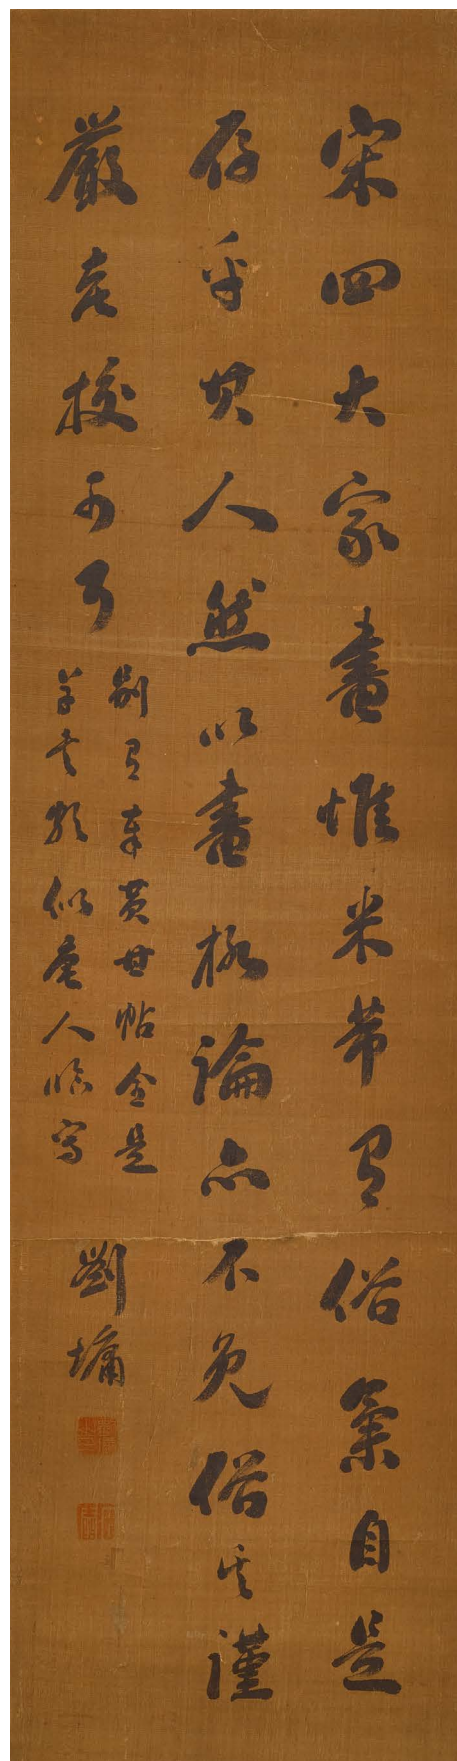 宋四大家書惟米芾有俗氣自是
存乎其人然以書格論亦不免俗其謹
嚴處校可耳
別有章黃世帖全是
草書顏似唐人臨寫
劉墉